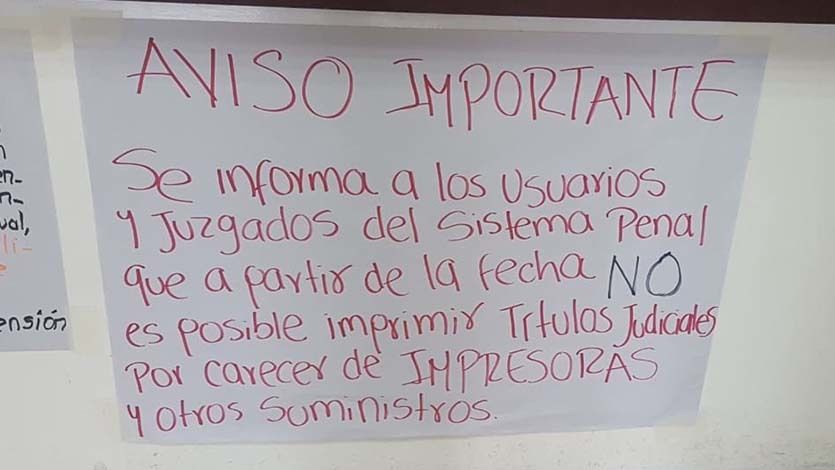 AVISO IMPORTANTE
Se informa a los Usuarios
y Juzgados del Sistema Penal
que a partir de la fecha NO
es posible imprimir Títulos Judiciales
Por carecer de IMPRESORAS
y otros Suministros.
n-
ual,
li-
e
ensión